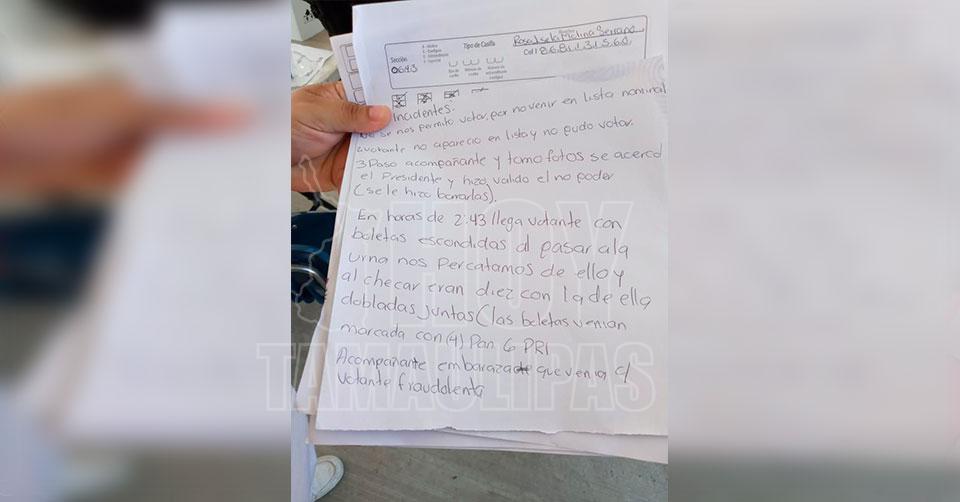 Sección
0643
A - Básica
C - Contigua
E - Extraordinaria
S - Especial
Tipo de Casilla
Tipo de casilla
Número de casilla
Número de extraordinaria contigua
Serrano
Cel 8681131560
Incidentes:
se nos permitio votar, por no venir en lista nominal
votante no aparecio en lista y no pudo votar.
3 Paso acompañante y tomo fotos se acerco
el Presidente y hizo valido el no poder
(se le hizo borrarlas).
En horas de 2:43 llega votante con
boletas escondidas al pasar a la
urna nos percatamos de ello y
al checar eran diez con la de ella,
dobladas juntas (las boletas venian
marcada con (4) Pan 6 PRI
Acompañante embarazada que venia c/
votante fraudolenta
HOY
TAMAULIPAS